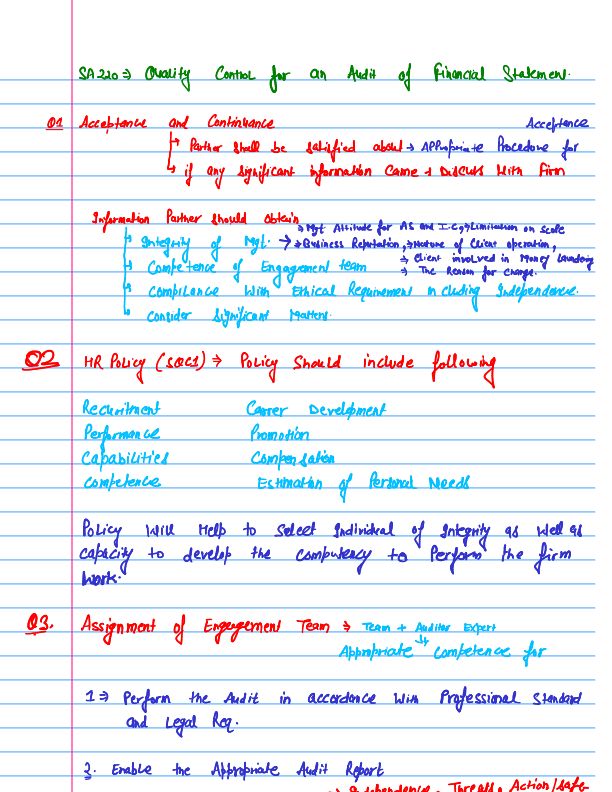 SA 220 ⇒ Quality Control for an Audit of Financial Statement.
Q1 Acceptance and Continuance Acceptance
↳ Partner shall be satisfied about → Appropriate Procedure for
↳ if any significant information came → Discuss with firm
Information Partner should obtain
→ Mgt Attitude for AS and I.C, → Limitation on scale
↳ Integrity of Mgt. → → Business Reputation, → Nature of Client operation,
→ Client involved in Money laundering
↳ Competence of Engagement team → The Reason for change.
↳ Compilance with Ethical Requirement including Independence.
↳ Consider significant Matters.
Q2 HR Policy (SQC1) ⇒ Policy Should include following
Recruitment Carrer Development
Performance Promotion
Capabilities Compensation
Competence Estimation of Personal Needs
Policy will Help to select Individual of Integrity as well as
capacity to develop the computency to Perform the firm
work.
Q3. Assignment of Engagement Team ⇒ Team + Auditor Expert
Appropriate Competence for
1 ⇒ Perform the Audit in accordance with Professional Standard
and Legal Req.
2. Enable the Appropriate Audit Report
Independence, Threats, Action/safe